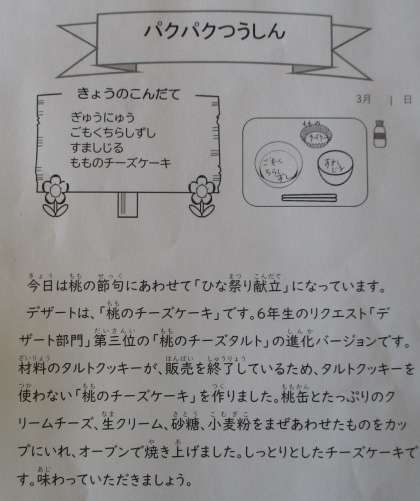 パクパクつうしん
きょうのこんだて
ぎゅうにゅう
ごもくちらしずし
すましじる
もものチーズケーキ
3月 1日
ごもく
ちらし
ずし
今日は桃の節句にあわせて「ひな祭り献立」になっています。
デザートは、「桃のチーズケーキ」です。6年生のリクエスト「デ
ザート部門」第三位の「桃のチーズタルト」の進化バージョンです。
材料のタルトクッキーが、販売を終了しているため、タルトクッキーを
使わない「桃のチーズケーキ」を作りました。桃缶とたっぷりのク
リームチーズ、生クリーム、砂糖、小麦粉をまぜあわせたものをカッ
プにいれ、オーブンで焼き上げました。しっとりとしたチーズケーキで
す。味わっていただきましょう。